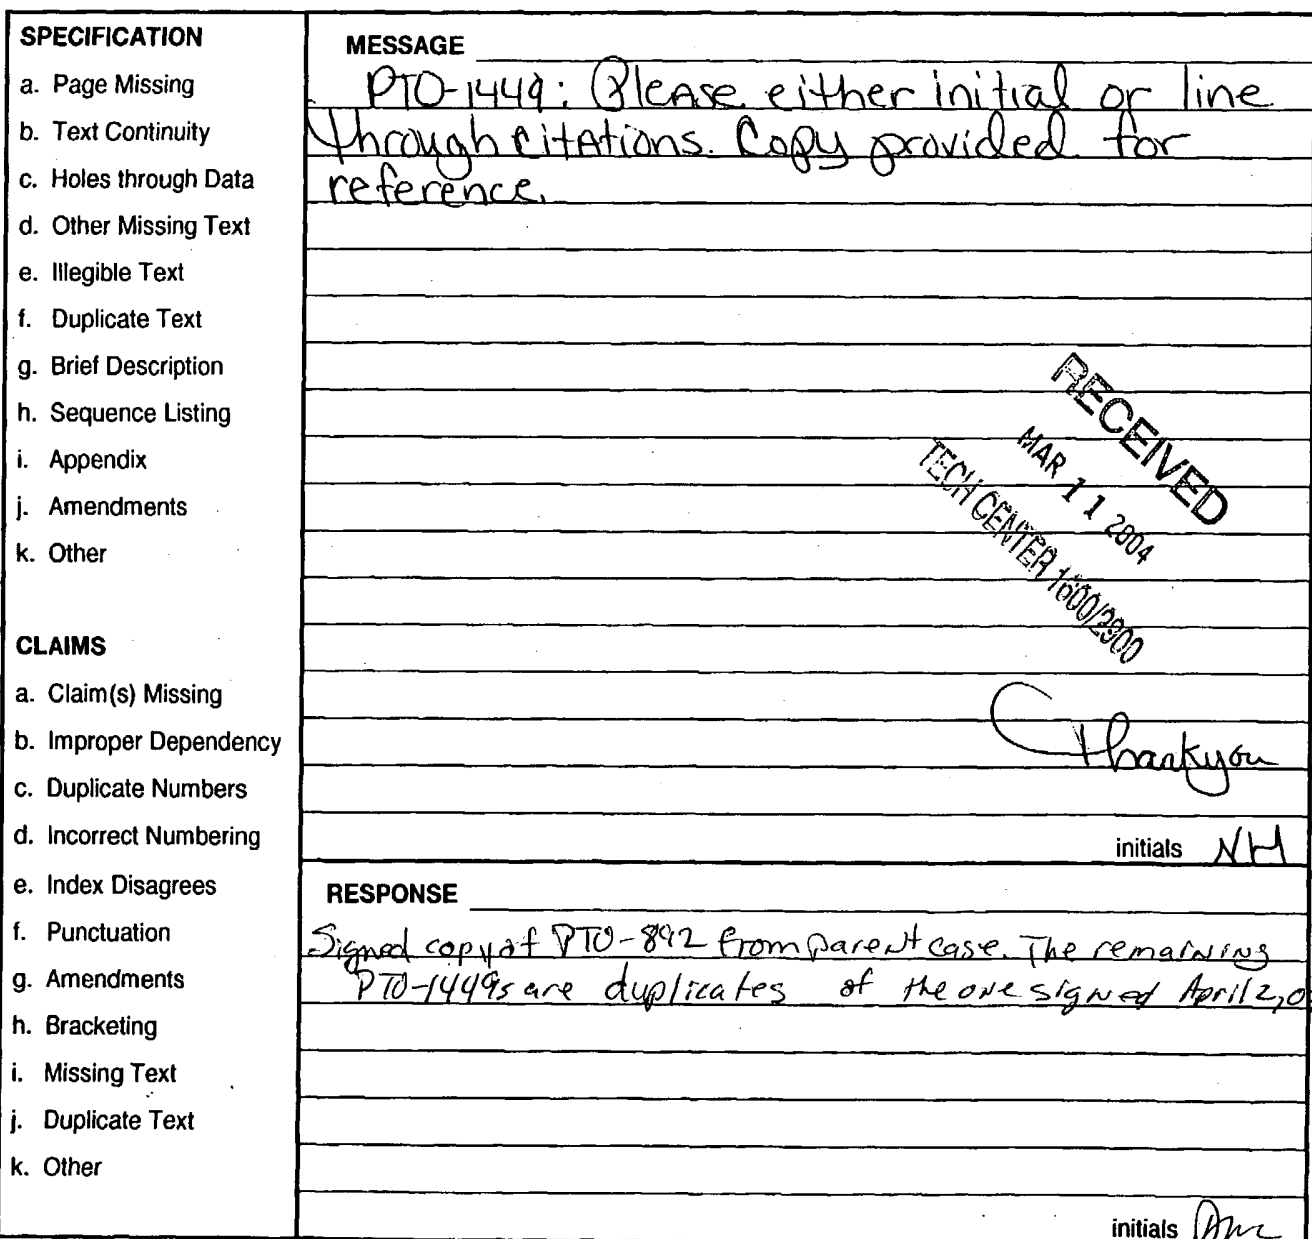 SPECIFICATION
a. Page Missing
b. Text Continuity
c. Holes through Data
d. Other Missing Text
e. Illegible Text
f. Duplicate Text
g. Brief Description
h. Sequence Listing
i. Appendix
j. Amendments
k. Other
CLAIMS
a. Claim(s) Missing
b. Improper Dependency
c. Duplicate Numbers
d. Incorrect Numbering
e. Index Disagrees
f. Punctuation
g. Amendments
h. Bracketing
i. Missing Text
j. Duplicate Text
k. Other
MESSAGE
PTO-1449: Please either initial or line
through citations. Copy provided for
reference.
RECEIVED
MAR 11 2004
TECH CENTER 1600/2900
Thank you
initials NH
RESPONSE
Signed copy of PTO-892 from parent case. The remaining
PTO-1449s are duplicates of the one signed April 2, 0
initials